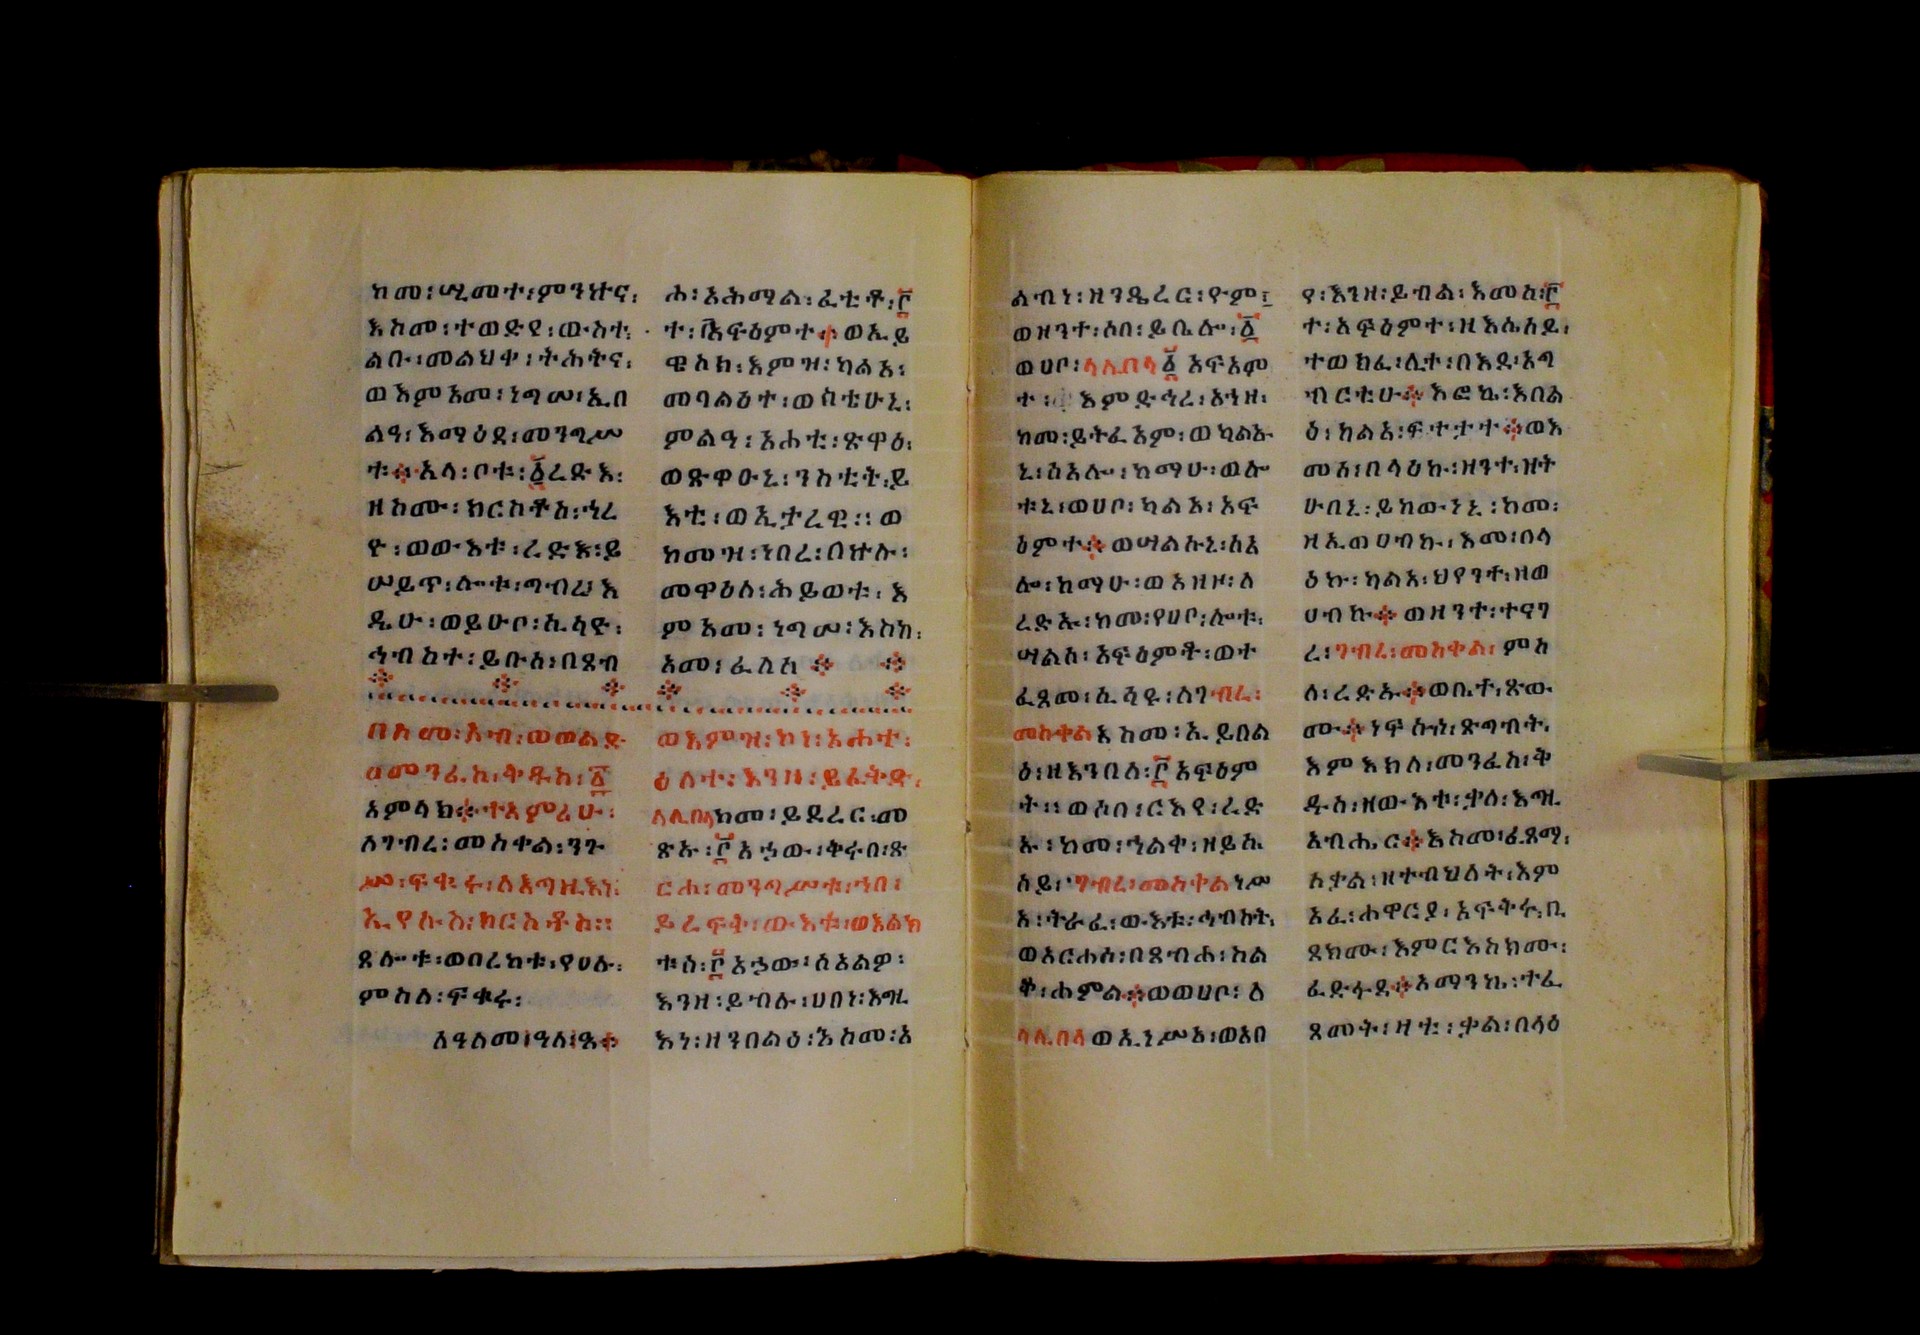 ከመ፡ ሢመተ፡ ምንኵና፡
እስመ፡ ተወድየ፡ ውስተ፡
ልቡ፡ መልህቀ፡ ትሕትና፡
ወእምአመ፡ ነግሠ፡ ኢበ
ልዓ፡ እማዕደ፡ መንግሥ
ቱ፡ አላ፡ ቦቱ፡ ፩ረድእ፡
ዘስሙ፡ ክርስቶስ፡ ኀረ
ዮ፡ ወውእቱ፡ ረድእ፡ ይ
ሠይጥ፡ ሎቱ፡ ግብረ፡ እ
ዴሁ፡ ወይሁቦ፡ ኢላዊ፡
ኅብስተ፡ ይቡሰ፡ በጸብ
በስመ፡ አብ፡ ወወልድ
ወመንፈስ፡ ቅዱስ፡ ፩
አምላክ ተአምሪሁ፡
ለገብረ፡ መስቀል፡ ንጉ
ሥ፡ ፍቁሩ፡ ለእግዚእነ፡
ኢየሱስ፡ ክርስቶስ።
ጸሎቱ፡ ወበረከቱ፡ የሀሉ፡
ምስለ፡ ፍቁሩ፡
ለዓለመ፡ ዓለ፡ ዓ
ሐ፡ አሕማል፡ ፈቲቶ፡ ፫
ተ፡ አፍዕምተ ወኢይ
ዌስክ፡ እምዝ፡ ካልአ፡
መባልዕተ፡ ወስቴሁኒ፡
ምልዓ፡ አሐቲ፡ ጽዋዕ፡
ወጽዋዑኒ፡ ንስቲት፡ ይ
እቲ፡ ወኢታረዊ። ወ
ከመዝ፡ ነበረ፡ በኵሉ፡
መዋዕለ፡ ሕይወቱ፡ እ
ምአመ፡ ነግሠ፡ እስከ፡
አመ፡ ፈለሰ
ወእምዝ፡ ኮነ፡ አሐተ፡
ዕለተ፡ እንዘ፡ ይፈትድ፡
ላሊበላ ከመ፡ ይደረር፡ መ
ጽኡ፡ ፫አኃው፡ ቅሩበ፡ ጽ
ርሐ፡ መንግሥቱ፡ ኀበ፡
ይረፍቅ፡ ውእቱ፡ ወእልክ
ቱሰ፡ ፫አኃው፡ ሰአልዎ፡
እንዘ፡ ይብሉ፡ ሀበነ፡ እግዚ
እነ፡ ዘንበልዕ፡ እስመ፡ አ
ልብነ፡ ዘንዴረር፡ ዮም፡
ወዘንተ፡ ሶበ፡ ይቤሎ፡ ፩
ወሀቦ፡ ላሊበላ ፩ አፍአም
ተ፡ እምድኅረ፡ አኀዘ፡
ከመ፡ ይትፈአም፡ ወካልኡ
ኒ፡ ሰአሎ፡ ከማሁ፡ ወሎ
ቱኒ፡ ወሀቦ፡ ካልአ፡ አፍ
ዕምተ ወሣልሱኒ፡ ሰአ
ሎ፡ ከማሁ፡ ወአዘዞ፡ ለ
ረድኡ፡ ከመ፡ የሀቦ፡ ሎቱ፡
ሣልሰ፡ አፍዕምቶ፡ ወተ
ፈጸመ፡ ኢላዊ፡ ለገብረ፡
መስቀል እስመ፡ ኢይበል
ዕ፡ ዘእንበለ፡ ፫አፍዕም
ት። ወሶበ፡ ርእየ፡ ረድ
ኡ፡ ከመ፡ ኀልቀ፡ ዘይሴ
ሰይ፡ ገብረ፡ መስቀል ነሥ
አ፡ ትራፈ፡ ውእቱ፡ ኅብስት፡
ወአርሐሰ፡ በጸብሐ፡ ሰል
ቅ፡ ሐምል ወወሀቦ፡ ለ
ላሊበላ ወኢነሥአ፡ ወአበ
የ፡ እንዘ፡ ይብል፡ እመሰ፡ ፫
ተ፡ አፍዕምተ፡ ዘእሴሰይ፡
ተወክፈ፡ ሊተ፡ በእደ፡ አግ
ብርቲሁ እፎኬ፡ እበል
ዕ፡ ካልአ፡ ፍተታተ ወእ
መሰ፡ በላዕኩ፡ ዘንተ፡ ዝት
ሁበኒ፡ ይከውነኒ፡ ከመ፡
ዘኢወሀብኩ፡ እመ፡ በላ
ዕኩ፡ ካልአ፡ ህየንተ፡ ዘወ
ሀብኩ ወዘንተ፡ ተናገ
ረ፡ ገብረ፡ መስቀል፡ ምስ
ለ፡ ረድኡ ወቤተ፡ ጽው
ሙ ነፍሱሰ፡ ጽግብት፡
እምእክለ፡ መንፈስ፡ ቅ
ዱስ፡ ዘውእቱ፡ ቃለ፡ እግዚ
አብሔር እስመ፡ ፈጸማ፡
ለቃል፡ ዘተብህለት፡ እም
አፈ፡ ሐዋርያ፡ አፍቅሩ፡ ቢ
ጸክሙ፡ እምርእስክሙ፡
ፈድፉደ አማንኬ፡ ተፈ
ጸመት፡ ዛቲ፡ ቃል፡ በላዕ